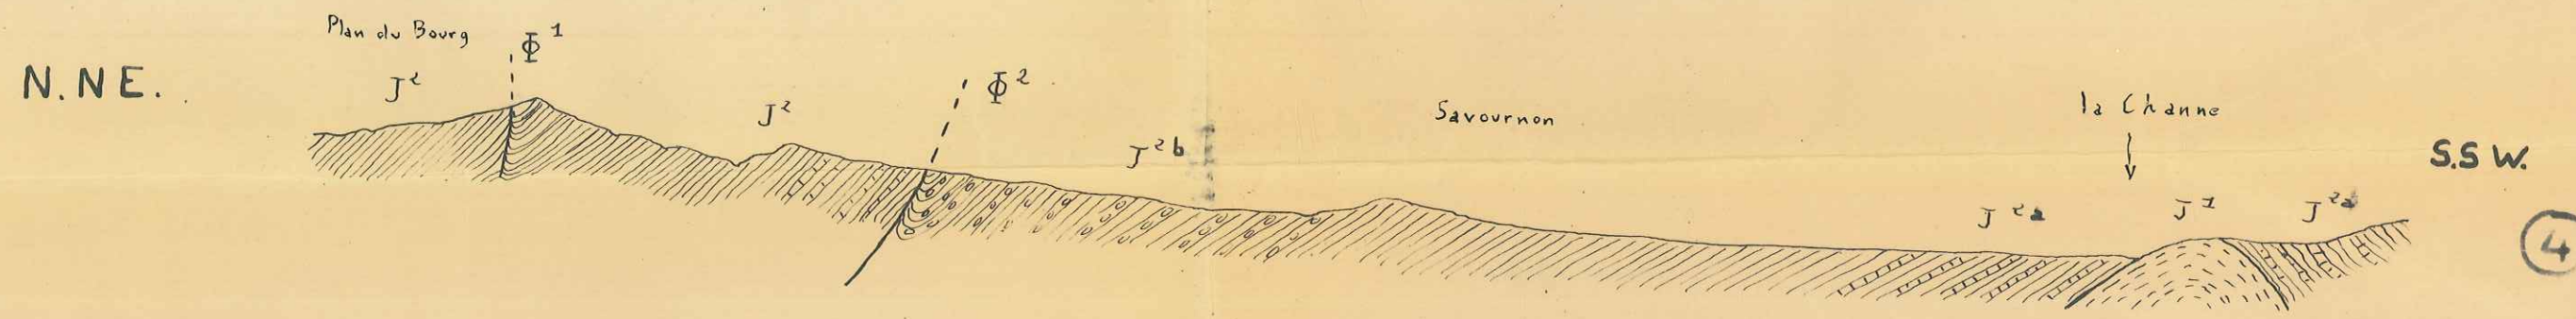 N.NE.
Plan du Bourg
J²
Φ¹
J²
Φ²
J²ᵇ
Savournon
la Channe
J²ᵃ
J¹
J²ᵃ
S.SW.
4